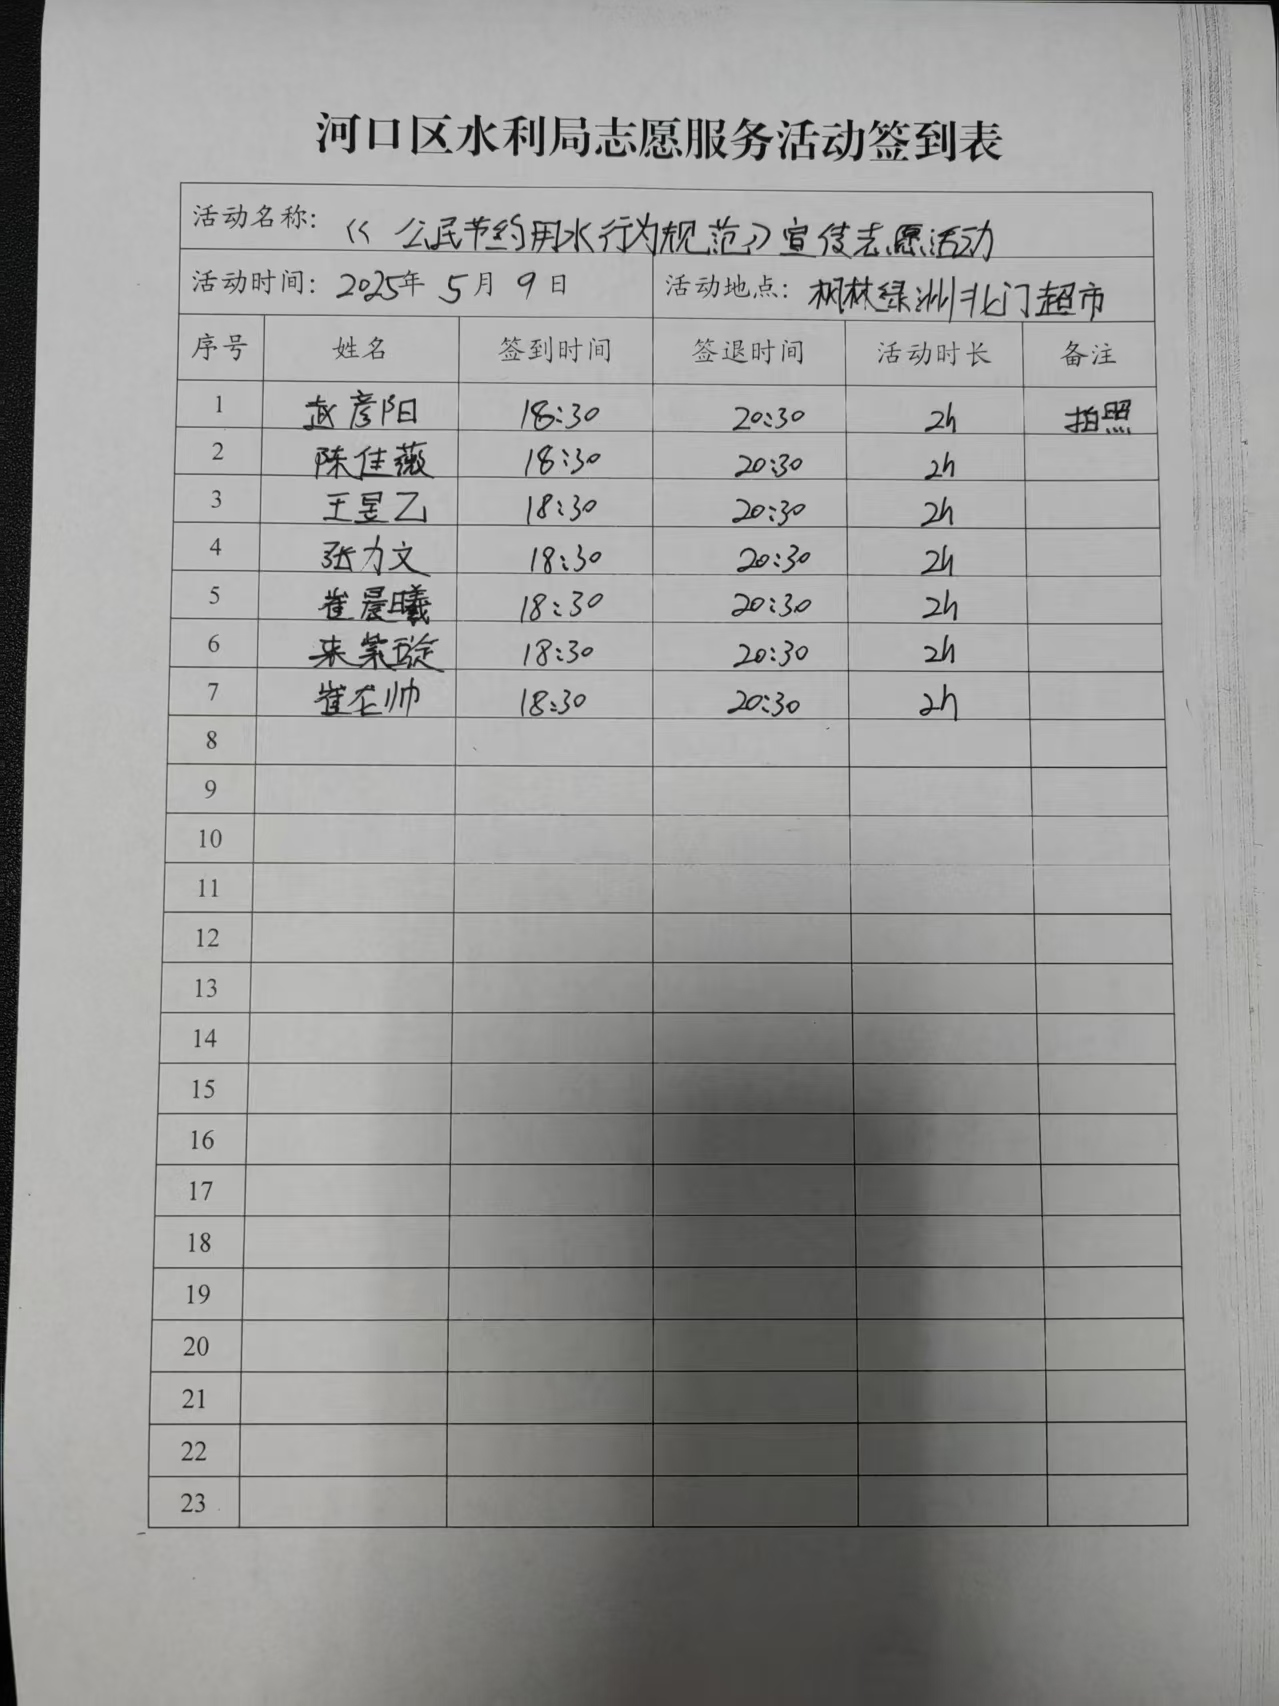 河口区水利局志愿服务活动签到表
活动名称：《公民节约用水行为规范》宣传志愿活动
活动时间：2025年 5月 9日 活动地点：枫林绿洲北门超市
序号 姓名 签到时间 签退时间 活动时长 备注
1 武彦阳 18:30 20:30 2h 拍照
2 陈佳薇 18:30 20:30 2h
3 王昱乙 18:30 20:30 2h
4 张力文 18:30 20:30 2h
5 崔晨曦 18:30 20:30 2h
6 18:30 20:30 2h
7 18:30 20:30 2h
8
9
10
11
12
13
14
15
16
17
18
19
20
21
22
23